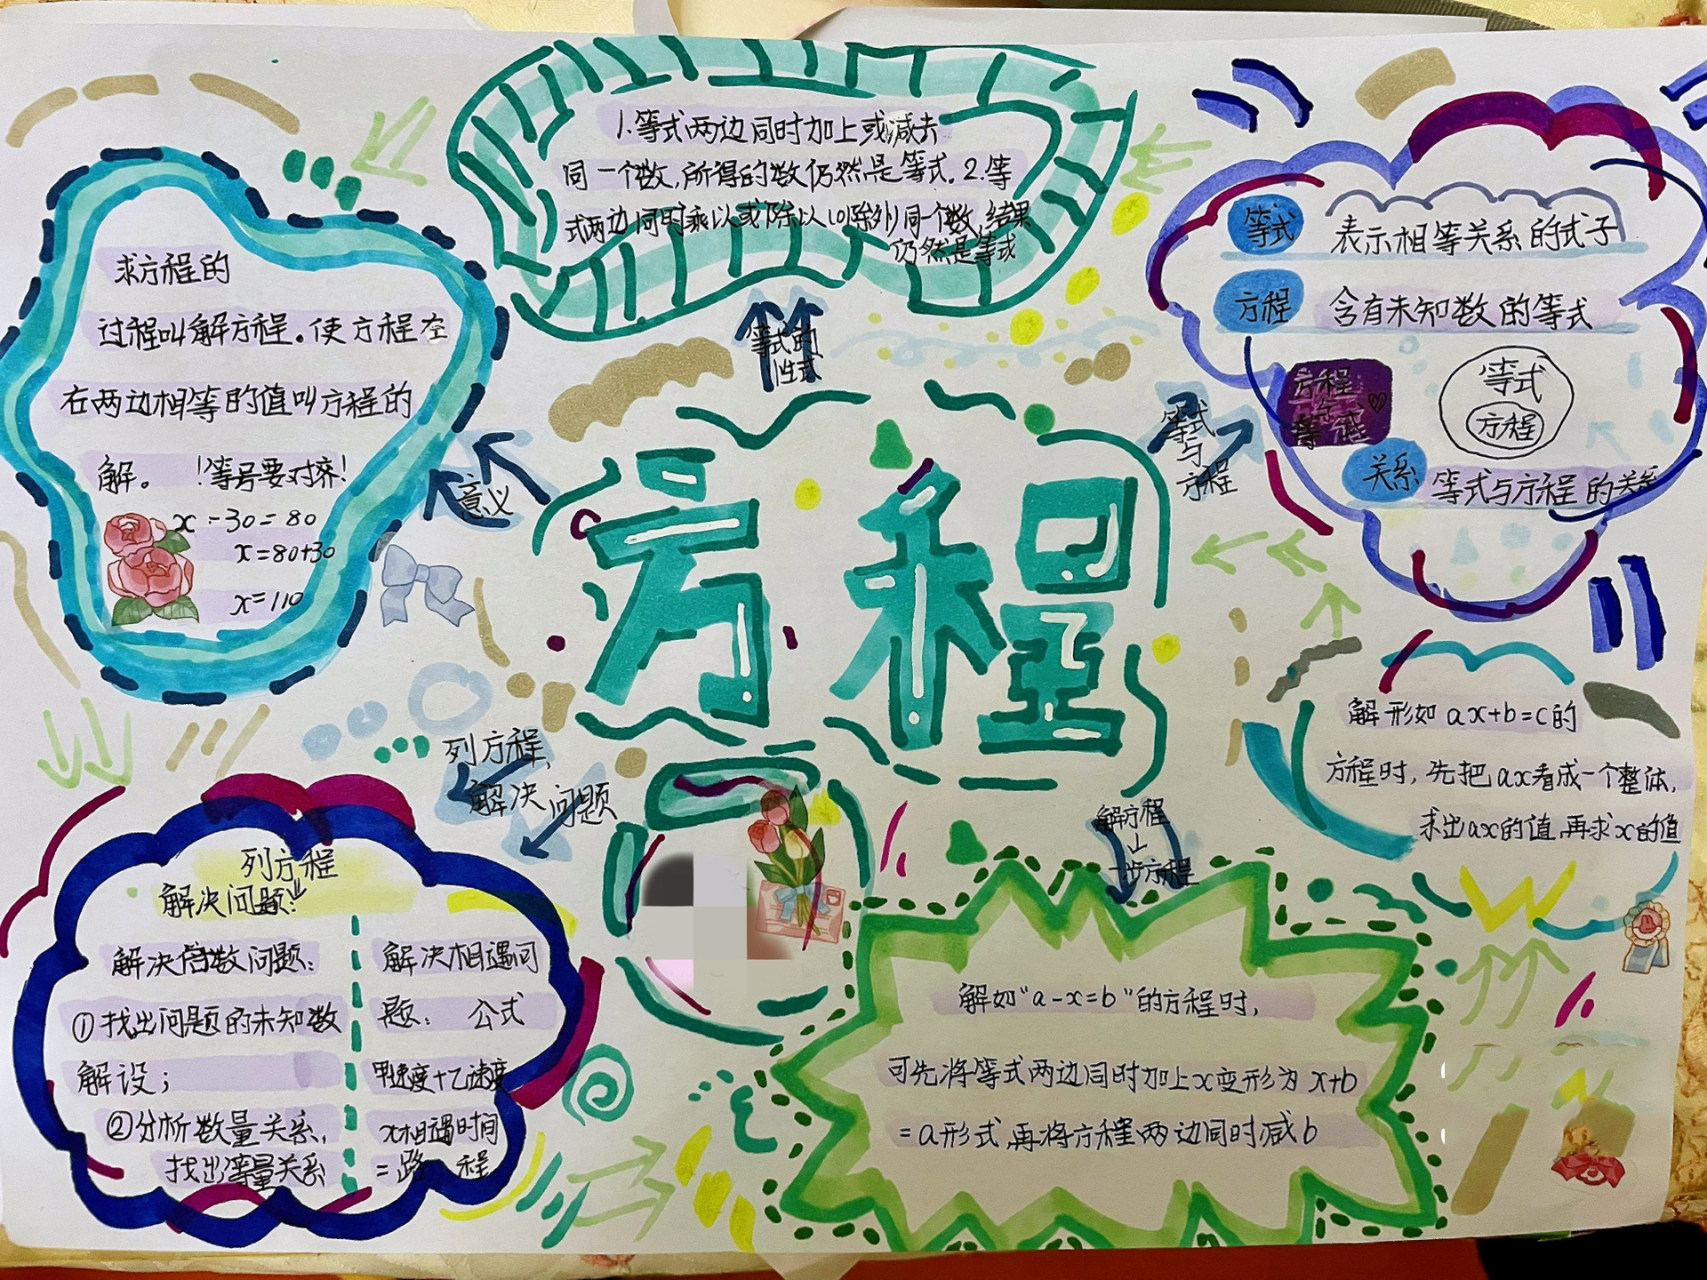 1.等式两边同时加上或减去
同一个数,所得的数仍然是等式。2.等
式两边同时乘以或除以(0除外)同一个数,结果
仍然是等式
等式的
性
求方程的
过程叫解方程。使方程左
右两边相等的值叫方程的
解。 !等号要对齐!
x-30=80
x=80+30
x=110
意义
等式 表示相等关系的式子
方程 含有未知数的等式
方程
与
等式
等式
方程
关系 等式与方程的关系
等式
与
方程
方程
解形如ax+b=c的
方程时,先把ax看成一个整体,
求出ax的值,再求x的值
列方程,
解决问题
列方程
解决问题:
解决倍数问题:
①找出问题的未知数
解设;
②分析数量关系,
找出等量关系
解决相遇问
题: 公式
甲速度+乙速度
x相遇时间
=路 程
解方程
一步方程
解如"a-x=b"的方程时,
可先将等式两边同时加上x变形为x+b
=a形式,再将方程两边同时减b